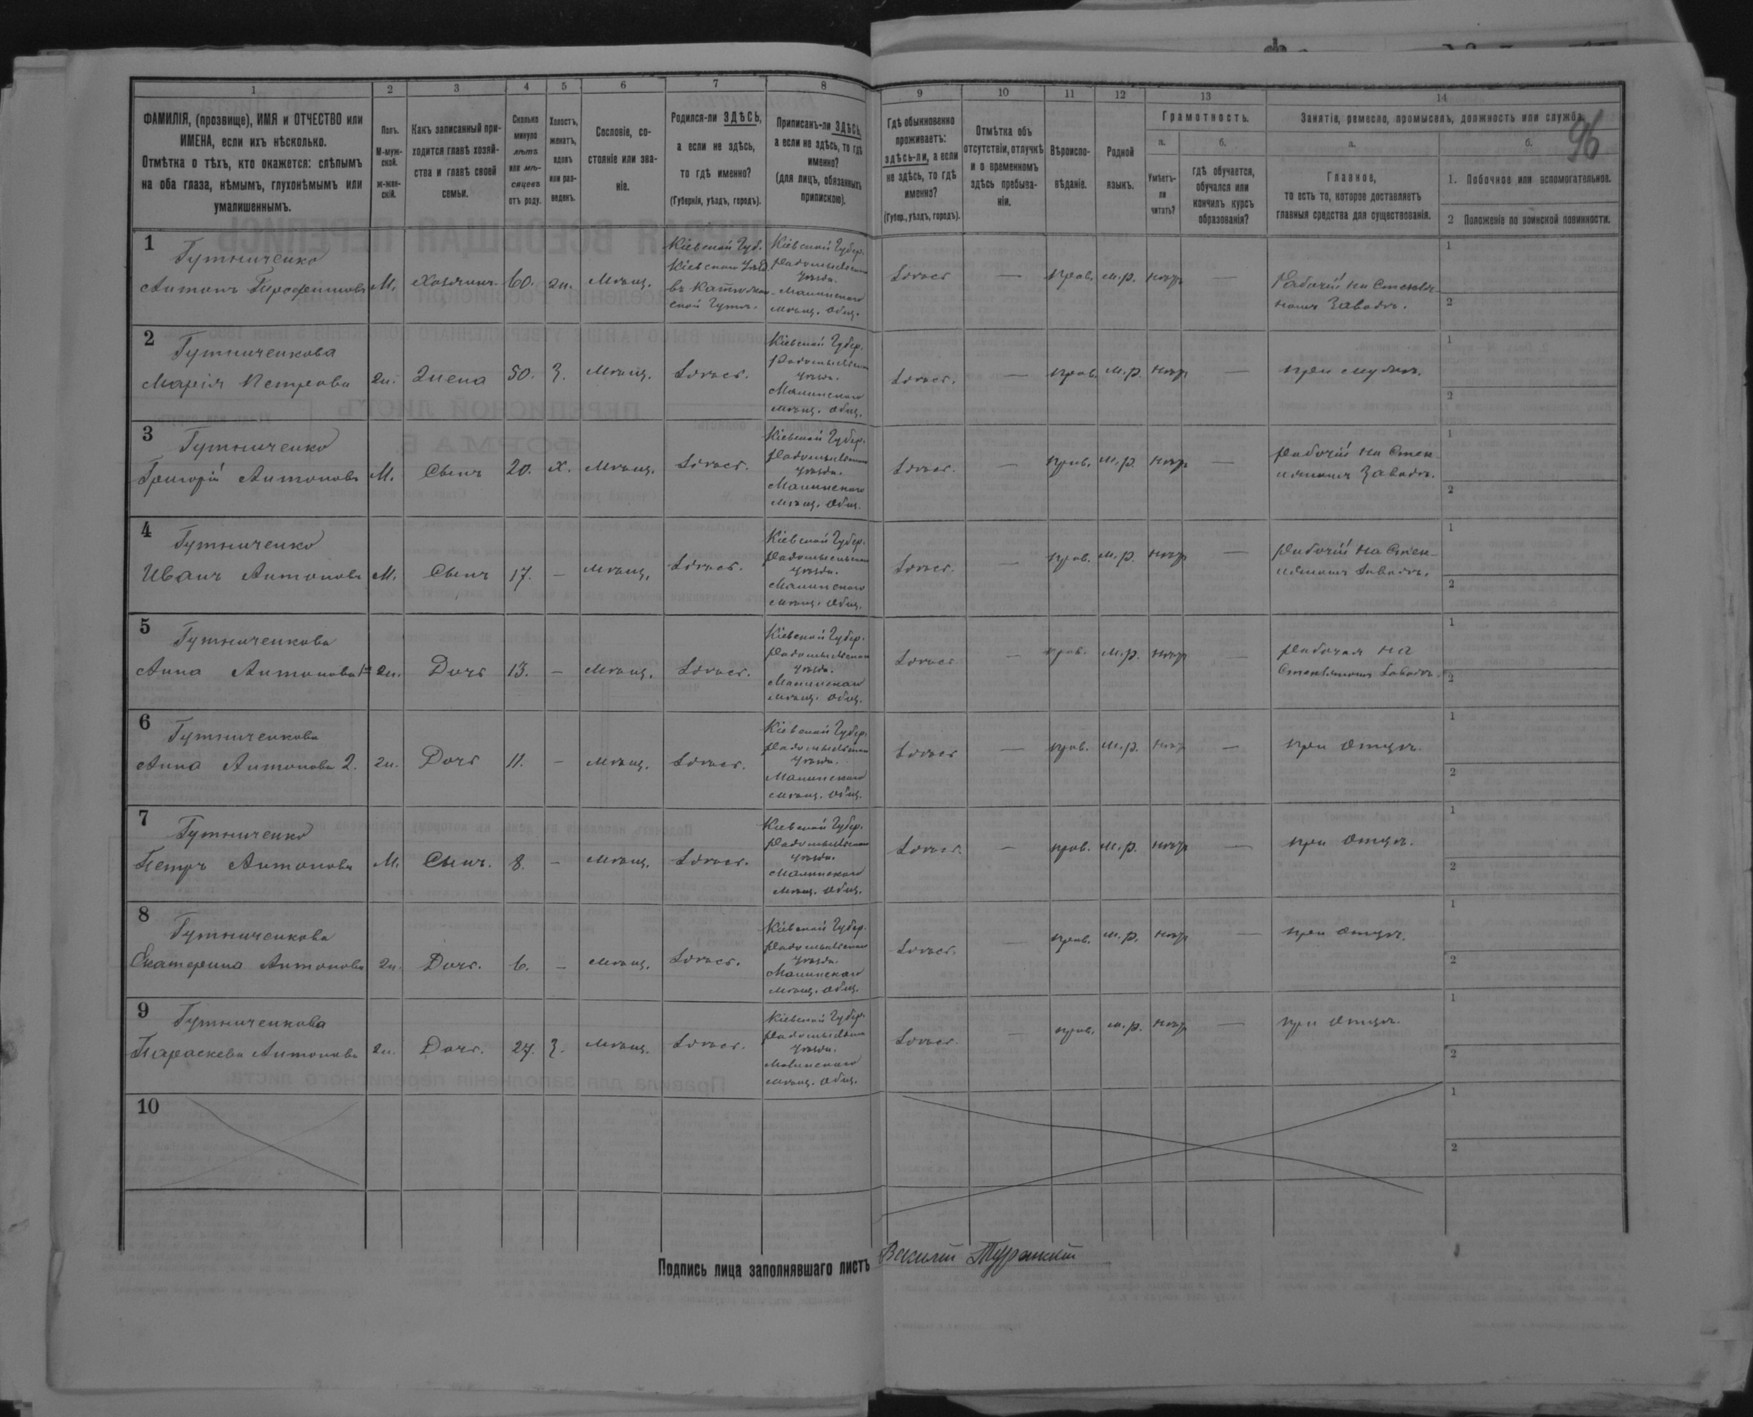 96
1 2 3 4 5 6 7 8 9 10 11 12 13 14
ФАМИЛІЯ, (прозвище), ИМЯ и ОТЧЕСТВО или
ИМЕНА, если ихъ нѣсколько.
Отмѣтка о тѣхъ, кто окажется: слѣпымъ
на оба глаза, нѣмымъ, глухонѣмымъ или
умалишеннымъ.
Полъ.
М-муж-
ской.
ж-жен-
скій.
Какъ записанный при-
ходится главѣ хозяй-
ства и главѣ своей
семьи.
Сколько
минуло
лѣтъ
или мѣ-
сяцевъ
отъ роду.
Холостъ,
женатъ,
вдовъ
или раз-
веденъ.
Сословіе, со-
стояніе или зва-
ніе.
Родился-ли ЗДѢСЬ,
а если не здѣсь,
то гдѣ именно?
(Губернія, уѣздъ, городъ).
Приписанъ-ли ЗДѢСЬ,
а если не здѣсь, то гдѣ
именно?
(для лицъ, обязанныхъ
припискою).
Гдѣ обыкновенно
проживаетъ:
здѣсь-ли, а если
не здѣсь, то гдѣ
именно?
(Губер., уѣздъ, городъ).
Отмѣтка объ
отсутствіи, отлучкѣ
и о временномъ
здѣсь пребыва-
ніи.
Вѣроиспо-
вѣданіе.
Родной
языкъ.
Грамотность.
а.
Умѣетъ-
ли
читать?
б.
гдѣ обучается,
обучался или
кончилъ курсъ
образованія?
Занятіе, ремесло, промыселъ, должность или служба.
а.
Главное,
то есть то, которое доставляетъ
главныя средства для существованія.
б.
1. Побочное или вспомогательное.
2 Положеніе по воинской повинности.
1
Гутниченко
Антонъ Трофимовъ М. Хозяинъ 60. ж. Мѣщ.
Кіевской Губ.
Кіевской Губер.
Радомысльск
Уѣзда.
Малинскаго
мѣщ. общ.
Здѣсь — прав. м.р. негр —
Рабочій на Стеклян-
номъ Заводѣ.
1
2
2
Гутниченкова
Марія Петрова ж. Жена 50. З. Мѣщ. Здѣсь.
Кіевской Губер.
Радомысльск
Уѣзда.
Малинскаго
мѣщ. общ.
Здѣсь. — прав. м.р. негр — при мужѣ.
1
2
3
Гутниченко
Григорій Антоновъ М. Сынъ 20. х. Мѣщ. Здѣсь.
Кіевской Губер.
Радомысльск
Уѣзда.
Малинскаго
мѣщ. общ.
Здѣсь. — прав. м.р. негр —
Рабочій на Стек-
лянномъ Заводѣ.
1
2
4
Гутниченко
Иванъ Антоновъ М. Сынъ 17. – мѣщ. Здѣсь.
Кіевской Губер.
Радомысльск
Уѣзда.
Малинскаго
мѣщ. общ.
Здѣсь. — прав. м.р. негр —
Рабочій на Стек-
лянномъ Заводѣ.
1
2
5
Гутниченкова
Анна Антонова 1я ж. Дочь 13. – мѣщ. Здѣсь.
Кіевской Губер.
Радомысльск
Уѣзда.
Малинскаго
мѣщ. общ.
Здѣсь — прав. м.р. негр —
Рабочая на
Стеклянномъ Заводѣ.
1
2
6
Гутниченкова
Анна Антонова 2. ж. Дочь 11. – мѣщ. Здѣсь.
Кіевской Губер.
Радомысльск
Уѣзда.
Малинскаго
мѣщ. общ.
Здѣсь — прав. м.р. негр — при отцѣ.
1
2
7
Гутниченко
Петръ Антоновъ М. Сынъ. 8. – мѣщ. Здѣсь.
Кіевской Губер.
Радомысльск
Уѣзда.
Малинскаго
мѣщ. общ.
Здѣсь. — прав. м.р. негр — при отцѣ.
1
2
8
Гутниченкова
Екатерина Антонова ж. Дочь. 6. – мѣщ. Здѣсь.
Кіевской Губер.
Радомысльск
Уѣзда.
Малинскаго
мѣщ. общ.
Здѣсь. — прав. м.р. негр — при отцѣ.
1
2
9
Гутниченкова
Параскева Антонова ж. Дочь. 27. З. мѣщ. Здѣсь.
Кіевской Губер.
Радомысльск
Уѣзда.
Малинскаго
мѣщ. общ.
Здѣсь — прав. м.р. негр — при отцѣ.
1
2
10
1
2
Подпись лица заполнявшаго листъ Василій